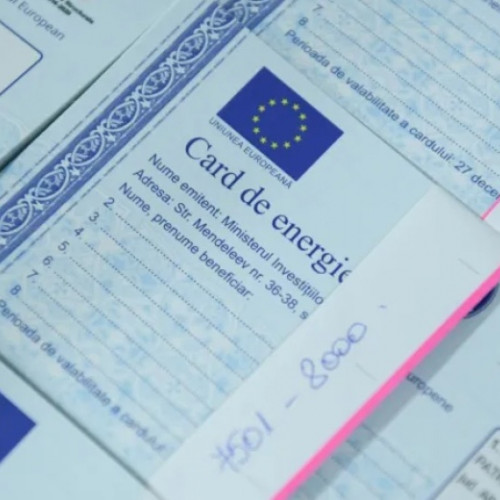 European
7.
8.
Perioada de valabilitate a cardului: 27 dec
UNIUNEA EUROPEANĂ
Card de energie
Nume emitent: Ministerul Investițiilo
Adresa: Str. Mendeleev nr. 36-38, s
Nume, prenume beneficiar:
2.
3.
4.
5.
6.
7.
8.
Perioada de valabilitate a cardului
7501 - 8000
europene
1.